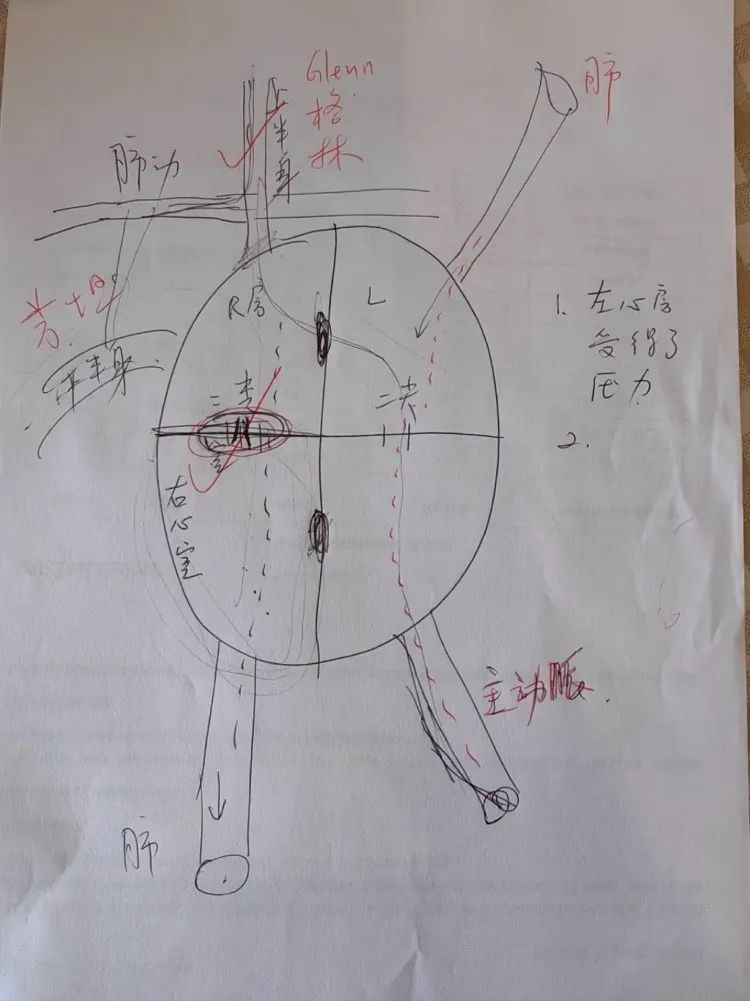 Glenn
格
林
上半身
肺
肺动
R房
L
1. 左心房
受得了
压力
2.
下半身
三尖
二尖
右心室
主动脉
肺